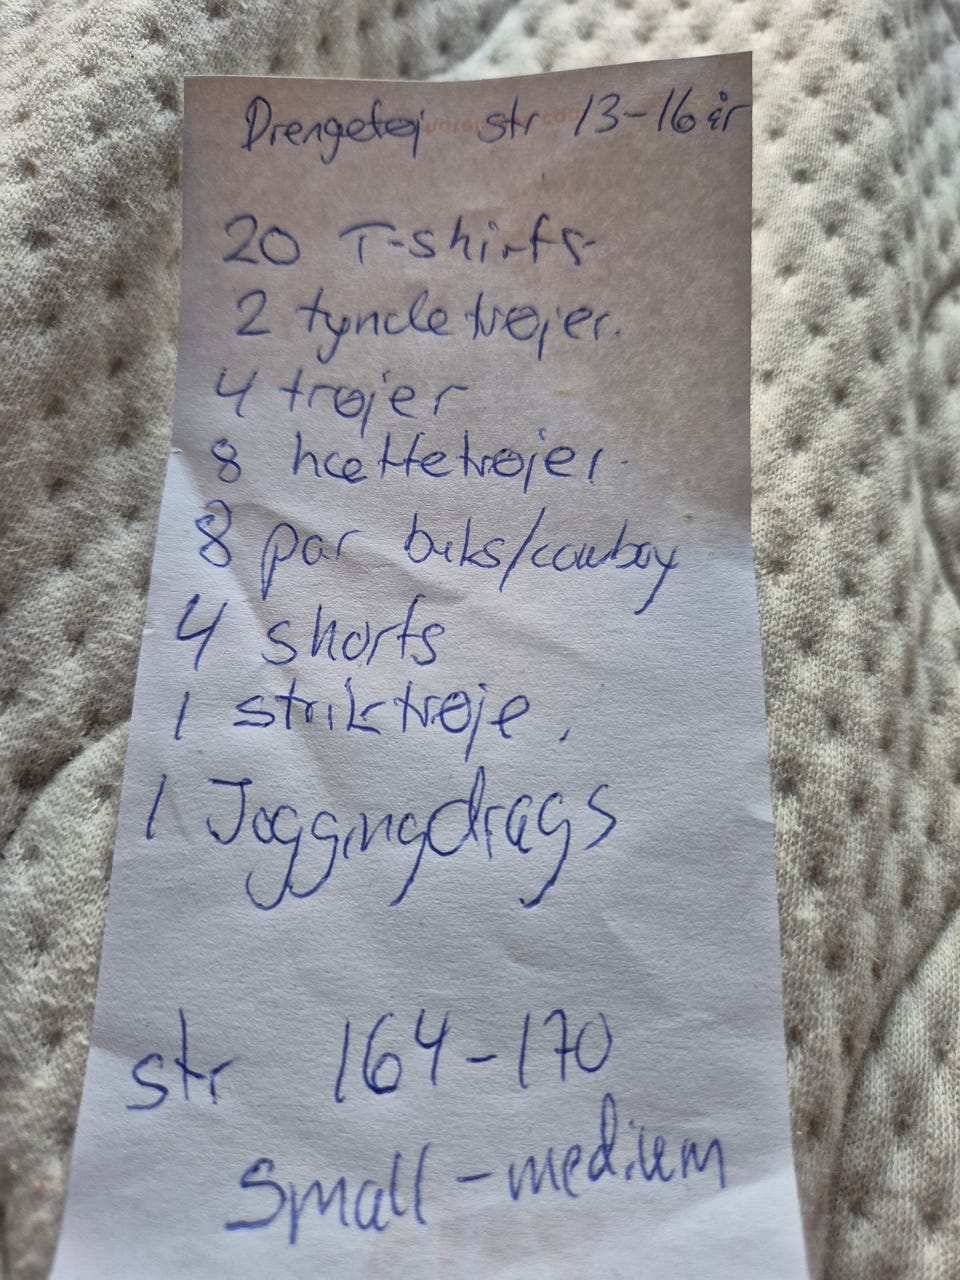 Drengetøj str 13-16 år
20 T-shirts
2 tynde trøjer.
4 trøjer
8 hættetrøjer.
8 par buks/cowboy
4 shorts
1 striktrøje.
1 Joggingdrags
str 164-170
Small-medium